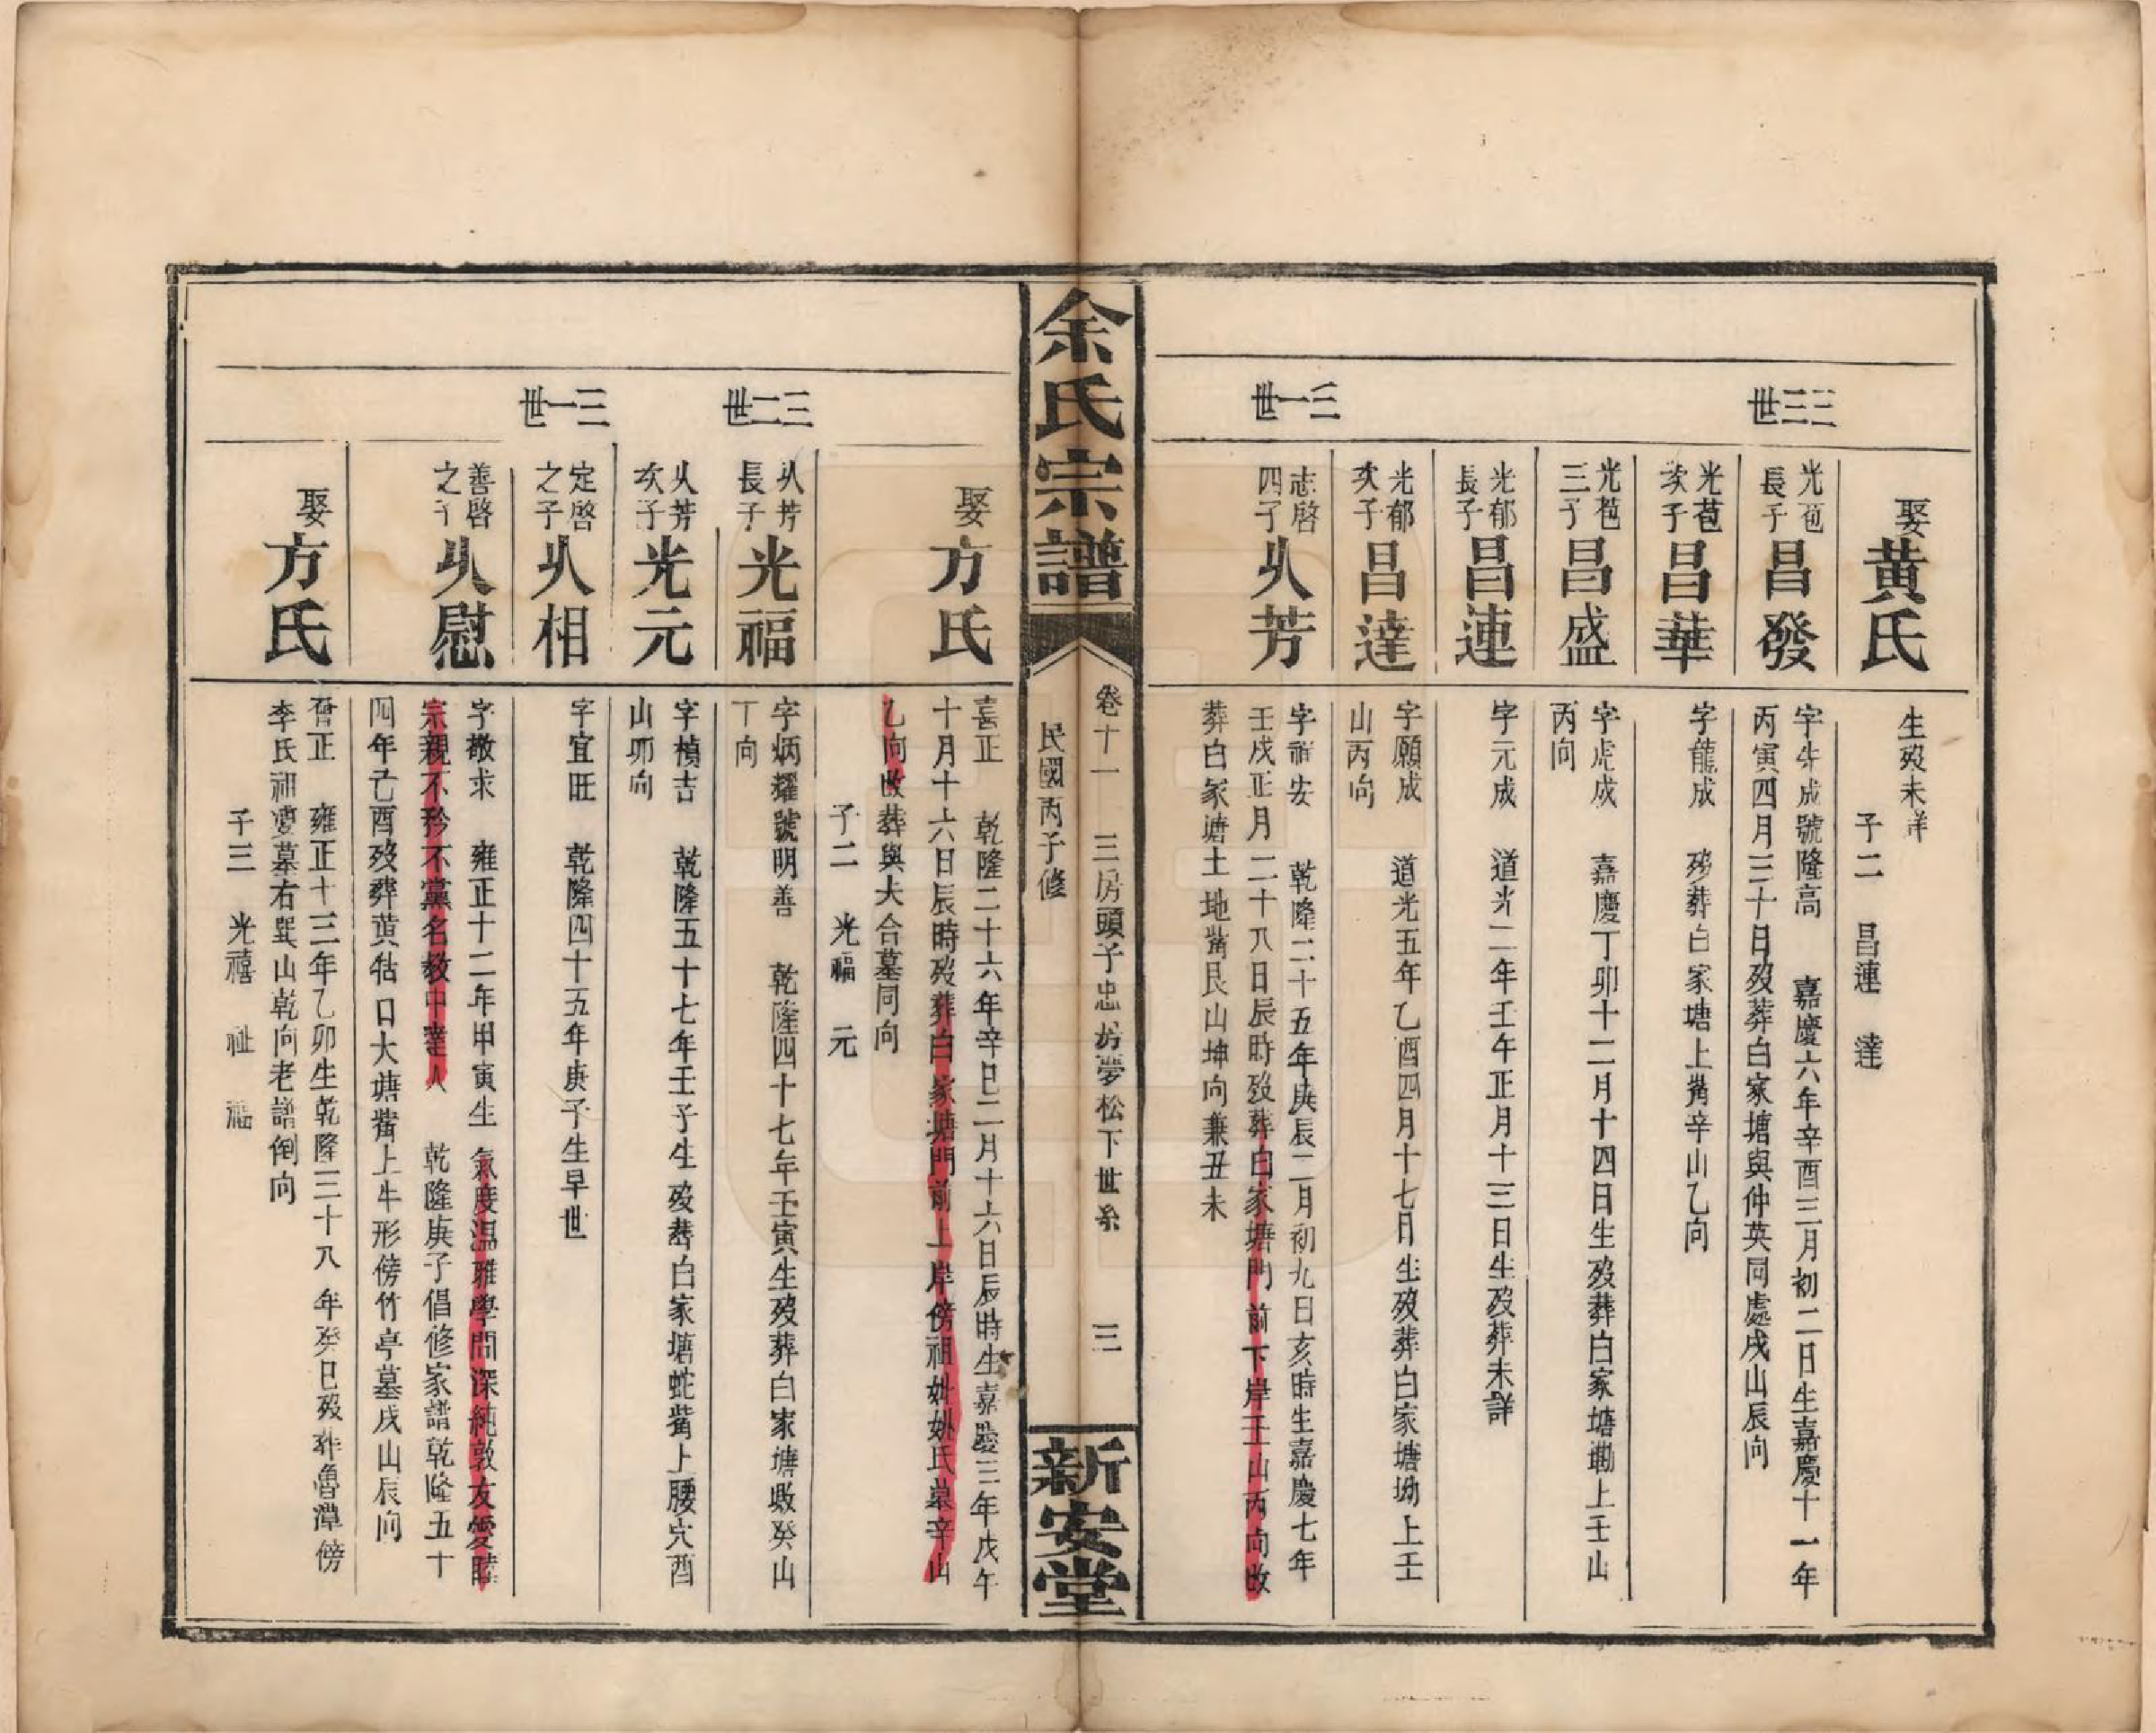 娶黃氏
生歿未詳
子二 昌連 達
三三世
光苞長子昌發
字生成號隆高 嘉慶六年辛酉三月初二日生嘉慶十一年
丙寅四月三十日歿葬白家塘與仲英同處戌山辰向
光苞次子昌華
字龍成 歿葬白家塘上嘴辛山乙向
光苞三子昌盛
字虎成 嘉慶丁卯十二月十四日生歿葬白家塘墈上壬山
丙向
光郁長子昌連
字元成 道光二年壬午正月十三日生歿葬未詳
光郁次子昌達
字願成 道光五年乙酉四月十七日生歿葬白家塘坳上壬
山丙向
三一世
志啓四子从芳
字祥安 乾隆二十五年庚辰二月初九日亥時生嘉慶七年
壬戌正月二十八日辰時歿葬白家塘門前下岸壬山丙向改
葬白家塘土地嘴艮山坤向兼丑未
余氏宗譜
卷十一 三房頭子忠房夢松下世系 三
民國丙子修
新安堂
娶方氏
喜正 乾隆二十六年辛巳二月十六日辰時生嘉慶三年戊午
十月十六日辰時歿葬白家塘門前上岸傍祖妣姚氏墓辛山
乙向改葬與夫合墓同向
子二 光福 元
三二世
从芳長子光福
字炳耀號明善 乾隆四十七年壬寅生歿葬白家塘墩癸山
丁向
从芳次子光元
字楨吉 乾隆五十七年壬子生歿葬白家塘蛇嘴上腰穴酉
山卯向
三一世
定啓之子从相
字宜旺 乾隆四十五年庚子生早世
善啓之子从慰
字敬求 雍正十二年甲寅生 氣度温雅學問深純敦友愛睦
宗親不矜不黨名教中達人 乾隆庚子倡修家譜乾隆五十
四年己酉歿葬黃牯口大塘嘴上牛形傍竹亭墓戌山辰向
娶方氏
啓正 雍正十三年乙卯生乾隆三十八年癸巳歿葬魯潭傍
李氏祖婆墓右巽山乾向老譜倒向
子三 光禧 祉 福